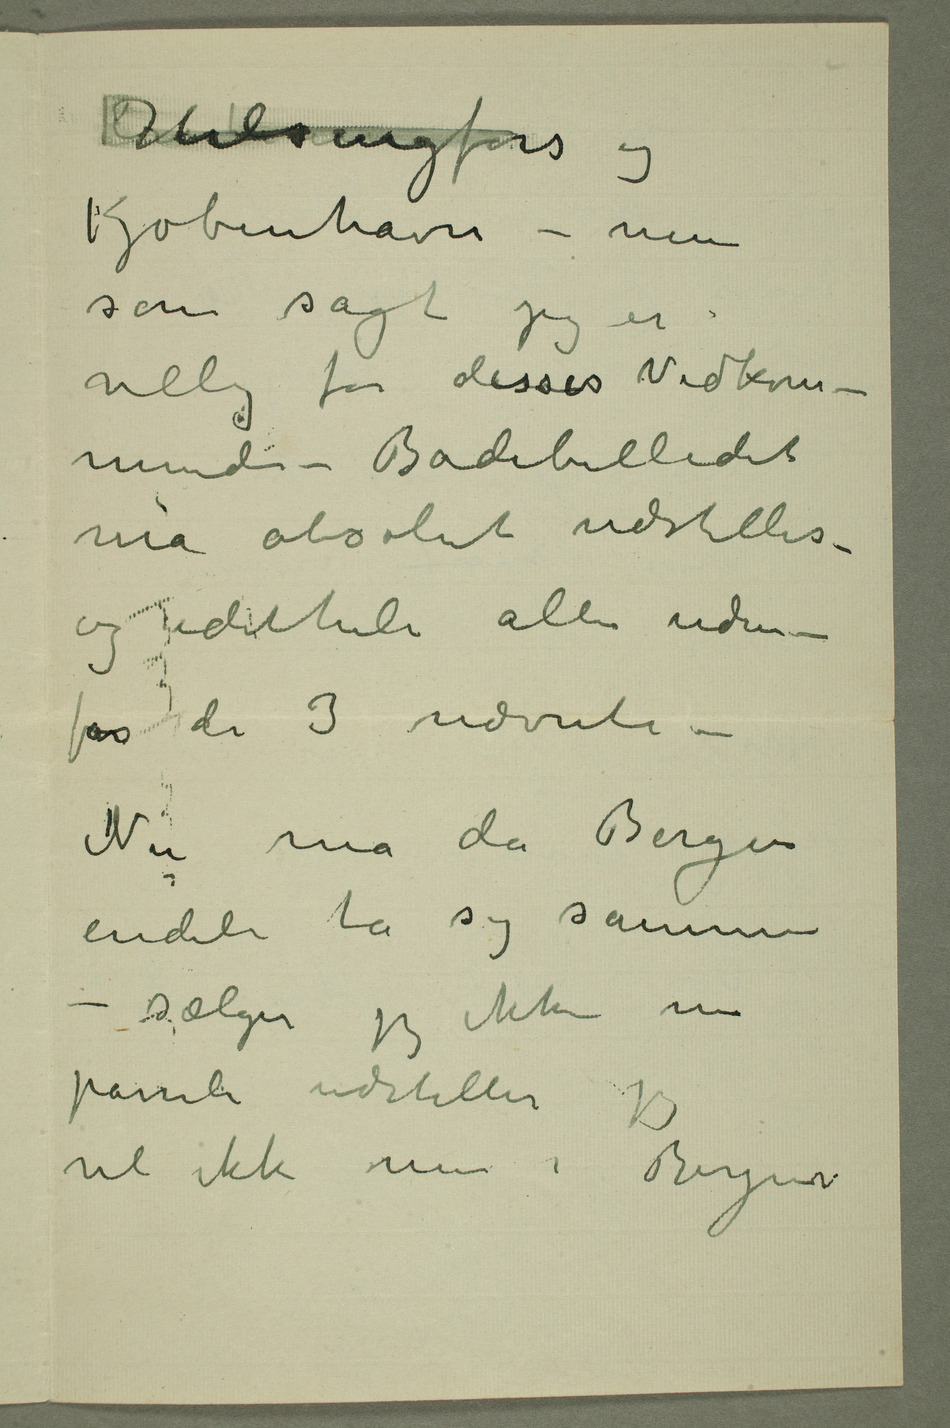 Helsingfors og
Kjøbenhavn – men
som sagt jeg er
villig for disses Vedkom-
mende – Badebilledet
må absolut udstilles –
og idethele alle uden-
for de 3 nævnte –
Nu må da Bergen
endele ta sig sammen
– sælger jeg ikke nu
udstiller jeg
vel ikke mer i Bergen